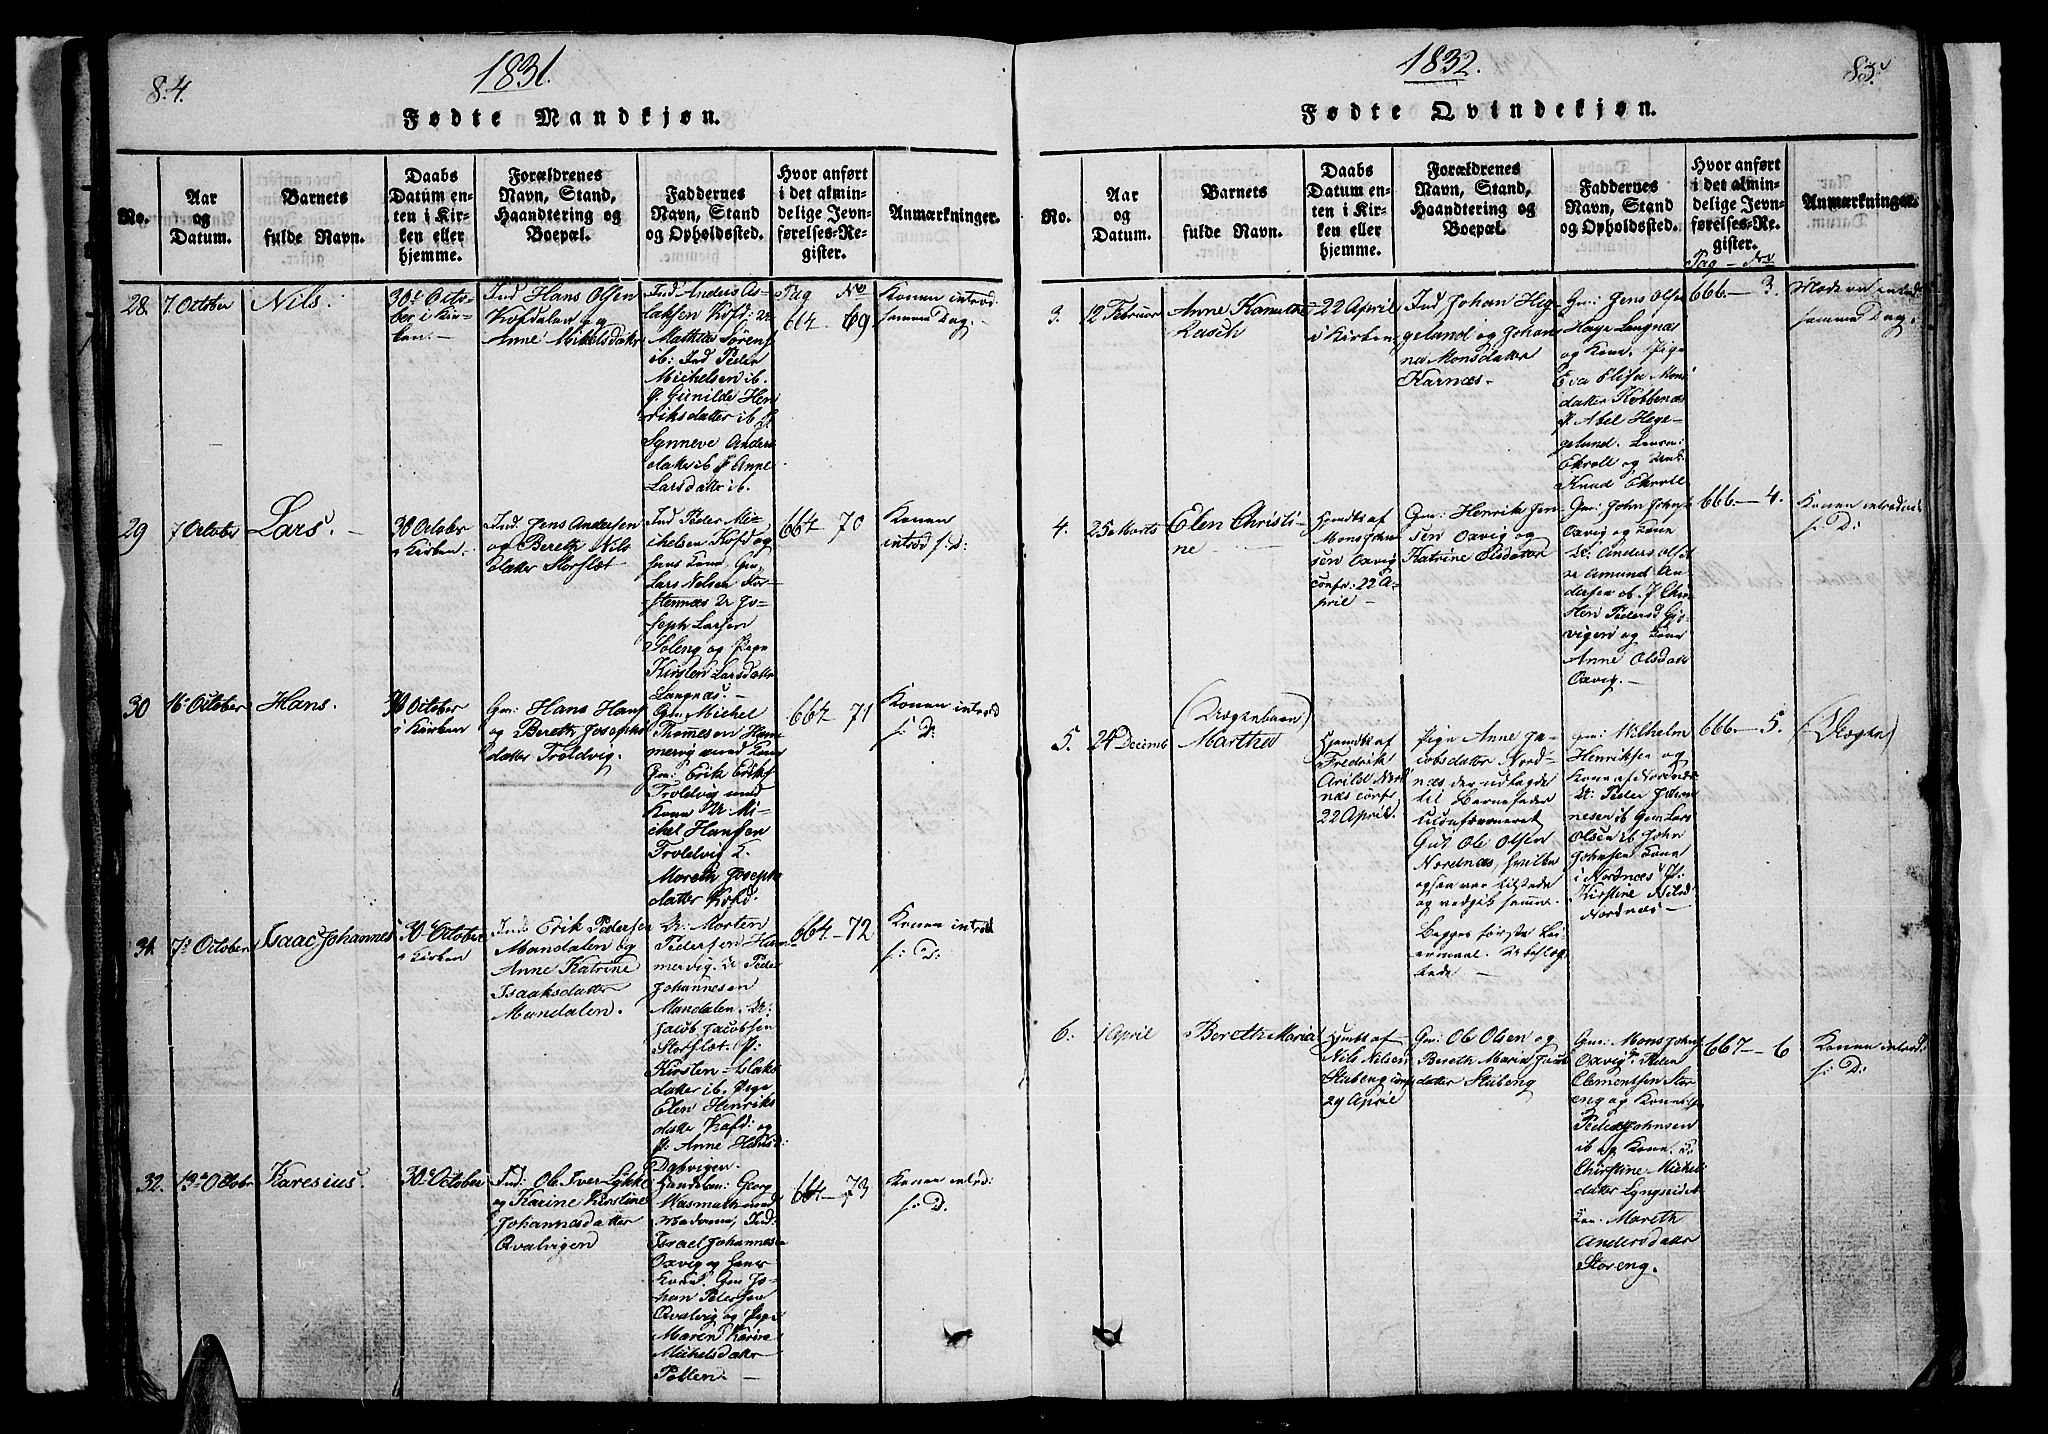 84.
1831.
Fødte Mandkjøn.
No.
Aar
og
Datum.
Barnets
fulde Navn.
Daabs
Datum en-
ten i Kir-
ken eller
hjemme.
Forældrenes
Navn, Stand,
Haandtering og
Boepæl.
Faddernes
Navn, Stand
og Opholdssted.
Hvor anført
i det almin-
delige Jevn-
førelses-Re-
gister.
Anmærkninger.
28. 7. October
Nils.
30te Octo-
ber i Kir-
ken.
Ind Hans Olsen
Kofdalen og
Anne Mikelsdatter
Ind Anders As-
laksen Kofd:
Mathias Sørens
ib: Ind Peder
Michelsen ib.
P. Gunilde Hen
riksdatter ib P.
Synneve Anders
datter ib P Anne
Larsdatter ib.
Pag No
664 69
Konen introd
samme Dag.
29 7 October
Lars.
30 October
i Kirken.
Ind Jens Andersen
og Bereth Nils
datter Storslet
Ind Peder Mi-
chelsen Kofd og
hans Kone, Gm
Lars Nilsen Stor-
stennæs Jo-
seph Larsen
Soleng og Pige
Kirsten Larsdatter
Langnæs.
664 70
Konen
introd s: D:
30 16. October
Hans.
30 October
i Kirken
Gm: Hans Hans
og Bereth Josephs
datter Troldvig.
Gm: Michel
Thomesen Ham
mervig med Kone
Gm: Erik Eriks
Troldvig med
Kone Mi-
chel Hansen
Troldvig
Mareth Josephs
datter Kofd.
664 71
Konen introd
s: D:
31. 7. October
Isaac Johannes
30. October
i Kirken
Ind Erik Pedersen
Mandalen og
Anne Katrine
Isaaksdatter
Mandalen.
Morten
Pedersen Ham
mervig. Peder
Johannesen
Mandalen.
Jacob Jacobsen
Storslet. P:
Kirsten Aslaks
datter ib. Pige
Elen Henriks
datter Kofd: og
P: Anne Hansd:
Dalvigen.
664 - 72
Konen introd
s: D:
32. 13. Octobr
Karesius.
30. October
Ind: Ole Iver Lykke
og Karine Kirstine
Johannesdatter
Qvalvigen
Handelsm: Georg
Wasmuth med
Madame, Ind:
Israel Johannesen
Oxvig og hans
Kone. Gm Jo-
han Pedersen
Qvalvig og Pige
Maren Karine
Michelsdatter
Pollen.
664 - 73
Konen introd:
s: D.
1832.
85.
Fødte Qvindekjøn.
No.
Aar
og
Datum.
Barnets
fulde Navn.
Daabs
Datum en-
ten i Kir-
ken eller
hjemme.
Forældrenes
Navn, Stand,
Haandtering og
Boepæl.
Faddernes
Navn, Stand
og Opholdssted.
Hvor anført
i det almin-
delige Jevn-
førelses-Re-
gister.
Pag - No
Anmærkninger.
3. 12 Februar
Anne
22 April
i Kirken
Ind Johan Heg-
geland og Johan-
na Monsdatter
Karnæs.
Gm: Jens Olsen
Hage Langnæs
og Kone. Pige
Eva Elisa Mons
datter Kobbenæs
P. Abel Hege-
gelund.
Ekroll og
Knud Ekroll
666 - 3.
Moderen introd
samme Dag.
4. 25 Marts
Elen Christi-
ne
Hjemdt af
Mons John
sen Oxvig
confr: 22 A-
pril
Gm: Henrik Jen
sen Oxvig og
Katrine Olsdatter
Gm: John Johns
Oxvig og Kone
Anders Olsen
Amund An
dersen ib. P
Pedersd Gjø-
vigen og Kone
Anne Olsdatter
Oxvig.
666 - 4.
Konen introd
s: D:
5. 24 Decemb
(Uægtebarn)
Martha
Hjemdt af
Fredrik
Arild Nord
næs confr
22 April.
Pige Anne Ja-
cobsdatter Nord-
næs der udlagde
til Barnefader
Gut Ole Olsen
Nordnæs, hvilke
ogsaa var tilstede
og vedgik samme.
Begges første Lei-
ermaal. Ubeslæg
tede.
Gm: Wilhelm
Henriksen og
Kone af Nordnæs
Peder Johan
nesen ib Gm: Lars
Olsen ib John
Johnsen Kone
i Nordnæs P:
Kirstine Nilsd
Nordnæs
666. - 5.
(Uægte)
6. 1 April
Bereth Maria
Hjemdt af
Nils Nilsen
Stubeng confr
29 April
Gm: Ole Olsen og
Bereth Maria
datter Stubeng
Gm: Mons Johns
Oxvig,
Clementsen Stor
eng og Kone
Peder Johnsen
ib og Kone.
Christine Michels
datter Lyngseidet
Mareth
Andersdatter
Storeng.
667 - 6
Konen introd:
s: D: